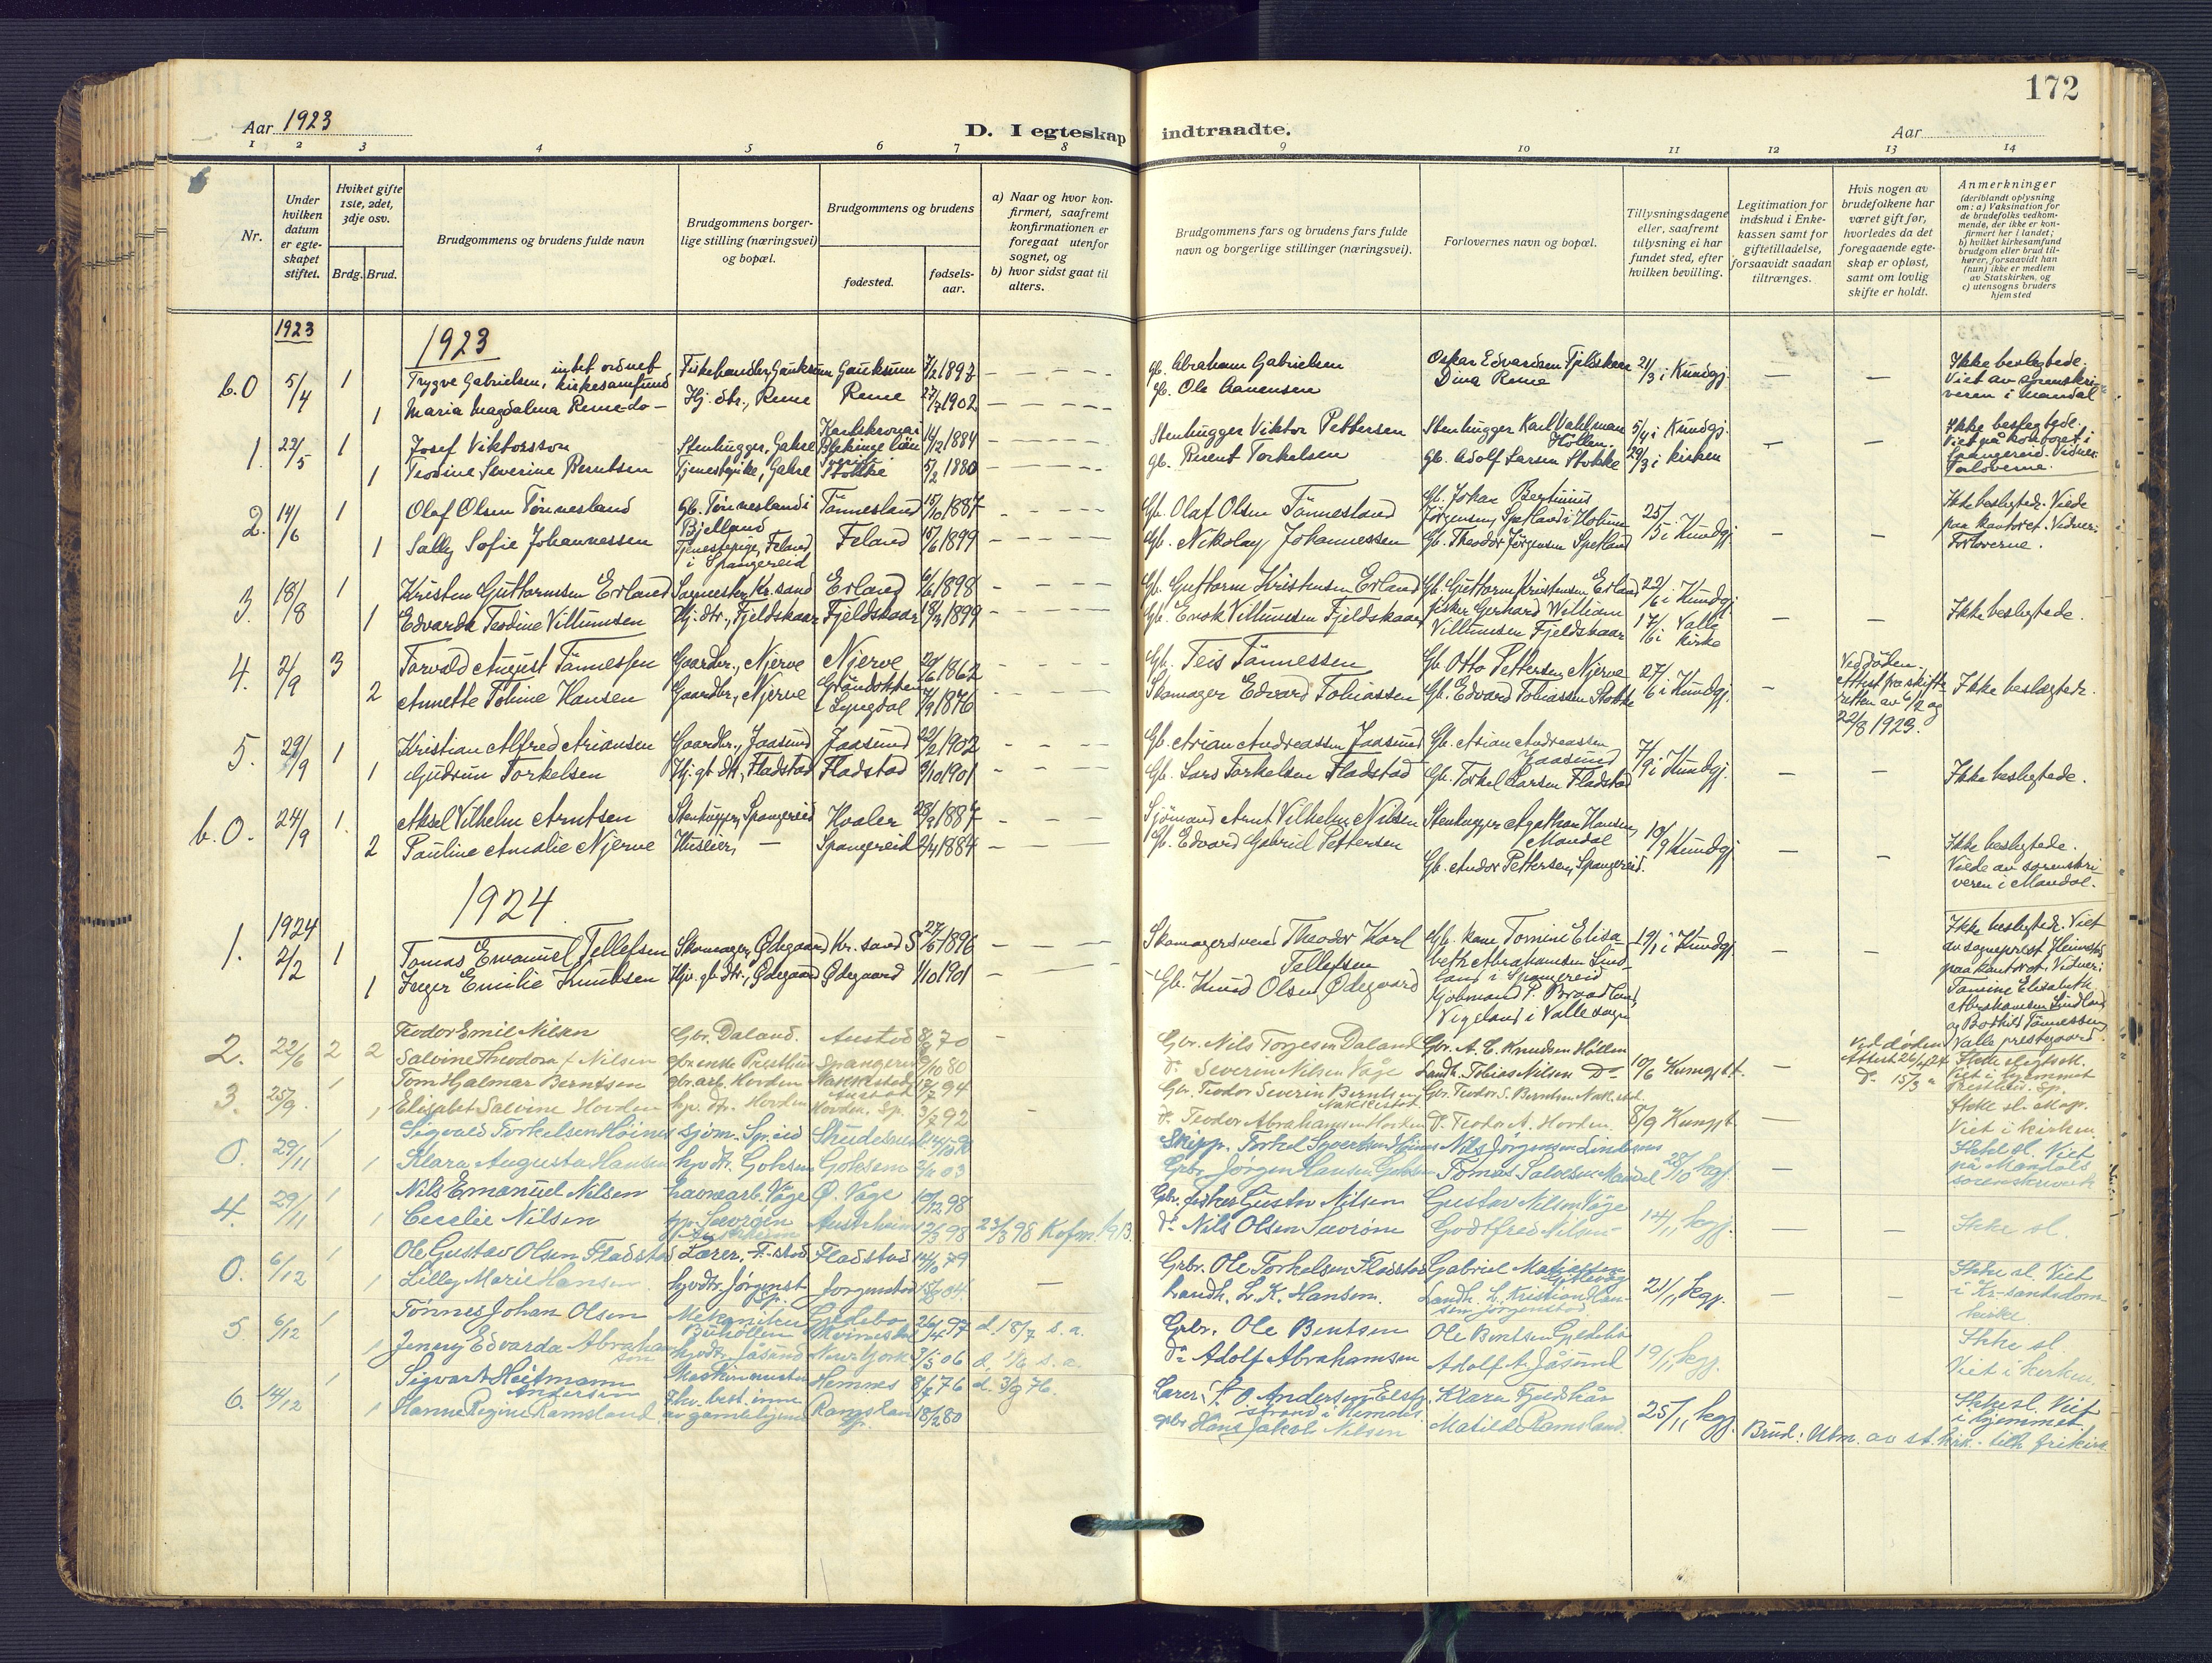 172
Aar 1923
D. I egteskap indtraadte.
Aar
1 2 3 4 5 6 7 8 9 10 11 12 13 14
Nr.
Under hvilken datum er egteskapet stiftet.
Hviket gifte 1ste, 2det, 3dje osv.
Brdg. Brud.
Brudgommens og brudens fulde navn
Brudgommens borgerlige stilling (næringsvei) og bopæl.
Brudgommens og brudens
fødested.
fødselsaar.
a) Naar og hvor konfirmert, saafremt konfirmationen er foregaat utenfor sognet, og
b) hvor sidst gaat til alters.
Brudgommens fars og brudens fars fulde navn og borgerlige stillinger (næringsvei).
Forlovernes navn og bopæl.
Tillysningsdagene eller, saafremt tillysning ei har fundet sted, efter hvilken bevilling.
Legitimation for indskud i Enkekassen samt for giftetilladelse, forsaavidt saadan tiltrænges.
Hvis nogen av brudefolkene har været gift før, hvorledes da det foregaaende egteskap er opløst, samt om lovlig skifte er holdt.
Anmerkninger (deriblandt oplysning om: a) Vaksination for de brudefolks vedkommende, der ikke er konfirmert her i landet; b) hvilket kirkesamfund brudgom eller brud tilhører, forsaavidt han (hun) ikke er medlem av Statskirken, og c) utensogns bruders hjemsted
1923
1923
b.0 5/4 1 Trygve Gabrielsen, intet ordnet kirkesamfund Fiskehandler, Gauksum Gauksum 7/2 1897 gb. Abraham Gabrielsen Oskar Edvardsen Fjeldskaar 21/3 i Kundgj. — — Ikke beslegtede. Viet av sorenskriveren i Mandal
1 Maria Magdalena Reme -do- Hj. dtr., Reme Reme 27/7 1902 gb. Ole Aanensen Dina Reme
1. 22/5 1 Josef Viktorsson Stenhugger, Gahre Karlskrona i Blekinge län Sverige 14/2 1884 Stenhugger Viktor Pettersen Stenhugger Karl Vahlman Höllen. 5/4 i Kundgj. — — Ikke beslegtede. Viet på kontoret i Spangereid. Vidner: Forloverne.
1 Teodine Severine Berntsen Tjenestepike, Gahre Stokke 5/2 1880 gb. Berent Torkelsen gb. Adolf Larsen Stokke 29/3 i kirken
2. 14/6 1 Olaf Olsen Tönnesland Gb. Tönnesland i Bjelland Tönnesland 15/10 1887 Gb. Olaf Olsen Tönnesland Gb. Johan Bertinius Jørgensen, Spetland i Holum 25/5 i Kundgj. — — Ikke beslegtede. Viede paa kontoret. Vidner: Forloverne.
1 Sally Sofie Johannessen Tjenestepige, Feland i Spangereid Feland 15/6 1899 Gb. Nikolay Johannessen Gb. Theodor Jørgensen Spetland
3. 18/8 1 Kristen Guttormsen Erland Kr.sand Erland 6/6 1898 Gb. Guttorm Kristensen Erland Gb. Guttorm Kristensen Erland 22/6 i Kundgj — — Ikke beslegtede.
1 Edvarda Teodine Villumsen Hj. dtr., Fjeldskaar Fjeldskaar 18/3 1899 Gb. Enok Villumsen Fjeldskaar fisker Gerhard William Villumsen Fjeldskaar 17/6 i Valle kirke
4. 2/9 3 Torvald August Tönnessen Gaardbr., Njerve Njerve 29/6 1862 Gb. Teis Tönnessen Gb. Otto Pettersen, Njerve 27/6 i Kundgj. — Ved døden. Attest fra skifteretten av 6/2 og 22/8 1923. Ikke beslegtede.
2 Annette Tobine Hansen Gaardbr., Njerve i Lyngdal 7/9 1876 Skomager Edvard Tobiassen Gb. Edvard Tobiassen Stokke
5. 29/9 1 Kristian Alfred Ariansen Gaardbr., Jaasund Jaasund 22/2 1902 Gb. Arian Andreassen Jaasund Gb. Arian Andreassen Jaasund 7/9 i Kundgj. — — Ikke beslegtede.
1 Gudrun Torkelsen Hj. gb. dtr., Fladstad Fladstad 1901 Gb. Lars Torkelsen Fladstad Gb. Torkel Larsen Fladstad
b.0. 24/9 1. Aksel Vilhelm Arntsen Stenhugger, Spangereid Hvaler 28/9 1887 Sjömand Arnt Vilhelm Nilsen Stenhugger Agathon Hansen, Mandal 10/9 Kundgj. — — Ikke beslegtede. Viede av sorenskriveren i Mandal.
2 Pauline Amalie Njerve Husleier, — Spangereid 2/4 1884 Gb. Edvard Gabriel Pettersen Gb. Andor Pettersen, Spangereid.
1924
1924
1. 2/2 1 Tomas Emanuel Tellefsen Skomager, Ødegaard Kr. sand S 27/6 1896 Skomagersvend Theodor Karl Tellefsen Gb. kone Tomine Elisabeth Abrahamsen Lindland i Spangereid 19/1 i Kundgj. — — Ikke beslegtede. Viet av sogneprest paa kontoret. Vidner: Tomine Elisabeth Abrahamsen Lindland og Bothild Tönnessen, Valle prestegaard
1 Inger Emilie Knudsen Hjv. gb. dtr., Ødegaard Ødegaard 1901 Gb. Knud Olsen, Ødegaard Kjöbmand P. Braadland, Vigeland i Valle sogn
2. 22/6 2 2 Teodor Emil Nilsen Gbr. Daland. Austad 70 Gbr. Nils Torgesen Daland Gbr. A. C. Knudsen Höllen 10/6 Kungjt. — ved døden Attest 26/4 24 Do 15/3 " Ikke slegtsk. Viet i hjemmet
Salvine Theodora f. Nilsen gbr. enke Spangereid 80 Do Severin Nilsen Våge Landh. Tobias Nilsen Do
3. 25/9. 1 Tom Hjalmar Berntsen gbr. arb. Hovden Nakkestad Austad 17/7 94 Gbr. Teodor Severin Berntsen Nakkestad Gbr. Teodor S. Berntsen Nakkestad. 8/9 Kungjt. — Ikke sl. Viet i kirken.
1 Elisabet Salvine Hovden hjv. dtr. Hovden Hovden. Sp. 3/7 92 Do Teodor Abrahamsen Hovden Do Teodor A. Hovden.
0. 29/11 1 Sigvald Torkelsen Höines sjöm. Skudesnes Skipp. Torkel Nils Jörgensen Lindesnes 28/10 kgj. — Ikke sl. Viet på Mandals
1 Klara Augusta Hansen hjvdtr. Goksem Goksem 03 Gbr. Jörgen Hansen Goksem Tomas Salvesen Mandal
4. 29/11 1 Nils Emanuel Nilsen havnearb. Våge Ø. Våge 10/12 98 Gbr. fisker Gustav Nilsen Gustav Nilsen Våge 14/11 kgj. — — Ikke sl.
1 Cecelie Nilsen 98 23/3 98 Kofm. 1913. Do Nils Olsen Godtfred Nilsen
0. 6/12 1 Ole Gustav Olsen Fladstad Lærer, F.stad Fladstad 79 Gbr. Ole Torkelsen Fladstad Gabriel 21/11 kgj. — — Ikke sl. Viet i Kr-sands domkirke.
1 Lilly Marie Hansen hjvdtr. Jörgenst. Sp. Jörgenstad 04 — Landh. L. K. Hansen. Landh. L. Kristian Hansen Jörgenstad
5. 6/12 1 Tønnes Johan Olsen Mekaniker 26/4 97 d. 18/7 s. a. Gbr. Ole Bentsen Ole Bentsen 19/11 kgj. Ikke sl. Viet i kirken.
1 Jenny Edvarda Abrahamsen hjvdtr. Jåsund New York 06 d. 1/6 s. a. Do Adolf Abrahamsen Adolf A. Jåsund
6. 14/12 1 Sigvart Heitmann Andersen Maskinmester Hemnes 8/7 76 d. 3/9 76. Lærer Andersen Klara Fjeldskår 25/11 kgj. Ikke sl. Viet i hjemmet.
1 Hanne Regine Ramsland av gamlehjem Ramsland Sp. 18/2 80 gbr Hans Jakob Nilsen Matilde Ramsland. Brud: Utm. av st.kirk. tilh. frikirk.